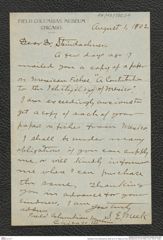 FIELD COLUMBIAN MUSEUM
CHICAGO
August 1, 1902
Dear Dr. Steindachner
A few days ago I
mailed you a copy of a paper
on Mexican Fishes "A Contribution
to the Ichthyology of Mexico"
I am exceedingly anxious to
get a copy of each of your
papers on fishes from Mexico
I shall be under many
obligations if you can supply
me, or will kindly inform
me where I can purchase
the same. Thanking
you in advance for your
kindness, I am
Yours truly
S. E. Meek
Field Columbian Museum
Chicago